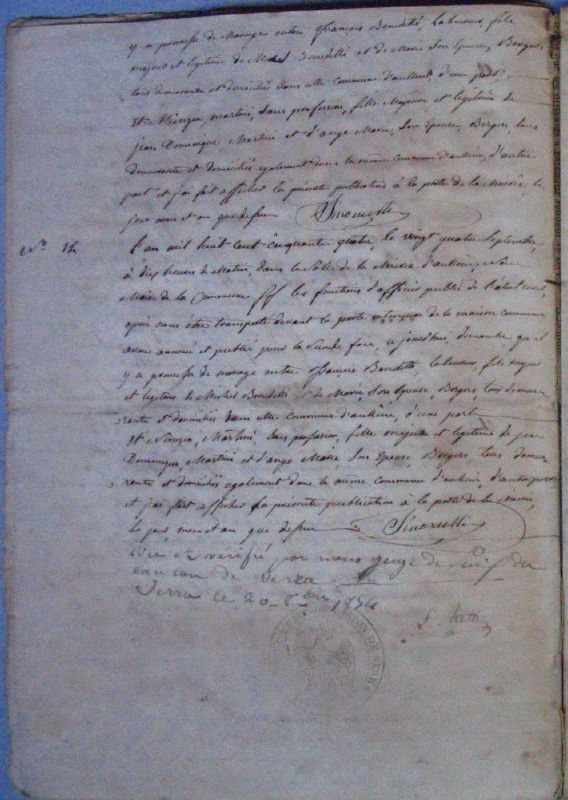 y a promesse de Mariage entre françois Benedetti, laboureur, fils
majeur et legitime de Michel Benedetti et de Marie son Epouse, Bergers,
tous demeurants et domiciliés dans cette Commune d'aullene, d'une part;
Et Nunzia, Martini, Sans profession, fille Majeure et legitime de
jean Dominique Martini et d'ange Marie, Son Epouse, Bergers, tous
demeurants et domiciliés également dans la même commune d'aullene, d'autre
part et j'ai fait afficher la présente publication à la porte de la Mairie, le
jour mois et an que dessus
N° 12 L'an mil huit cent cinquante quatre, le vingt quatre Septembre,
à dix heures du Matin, dans la Salle de la Mairie d'aullene, Nous
Maire de la Commune les fonctions d'officier public de l'état civil,
après nous être transporté devant la porte extérieure de la maison commune
avons annoncé et publié pour la seconde fois, ce jourd'hui dimanche qu'il
y a promesse de mariage entre françois Benedetti laboureur, fils majeur
et legitime de Michel Benedetti et de Marie, Son Epouse, Bergers, tous demeu-
rants et domiciliés dans cette commune d'aullene, d'une part
Et Nunzia, Martini, Sans profession, fille majeure et legitime de jean
Dominique Martini et d'ange Marie, Son Epouse, Bergers, tous demeu-
rants et domiciliés également dans la même commune d'aullene, d'autre part
et j'ai fait afficher la présente publication à la porte de la Mairie,
le jour, mois et an que dessus
Vu et vérifié par nous juge de paix du
canton de Serra
Serra le 20 8bre 1854